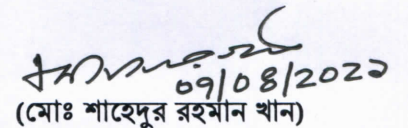 09/08/2022
(মোঃ শাহেদুর রহমান খান)